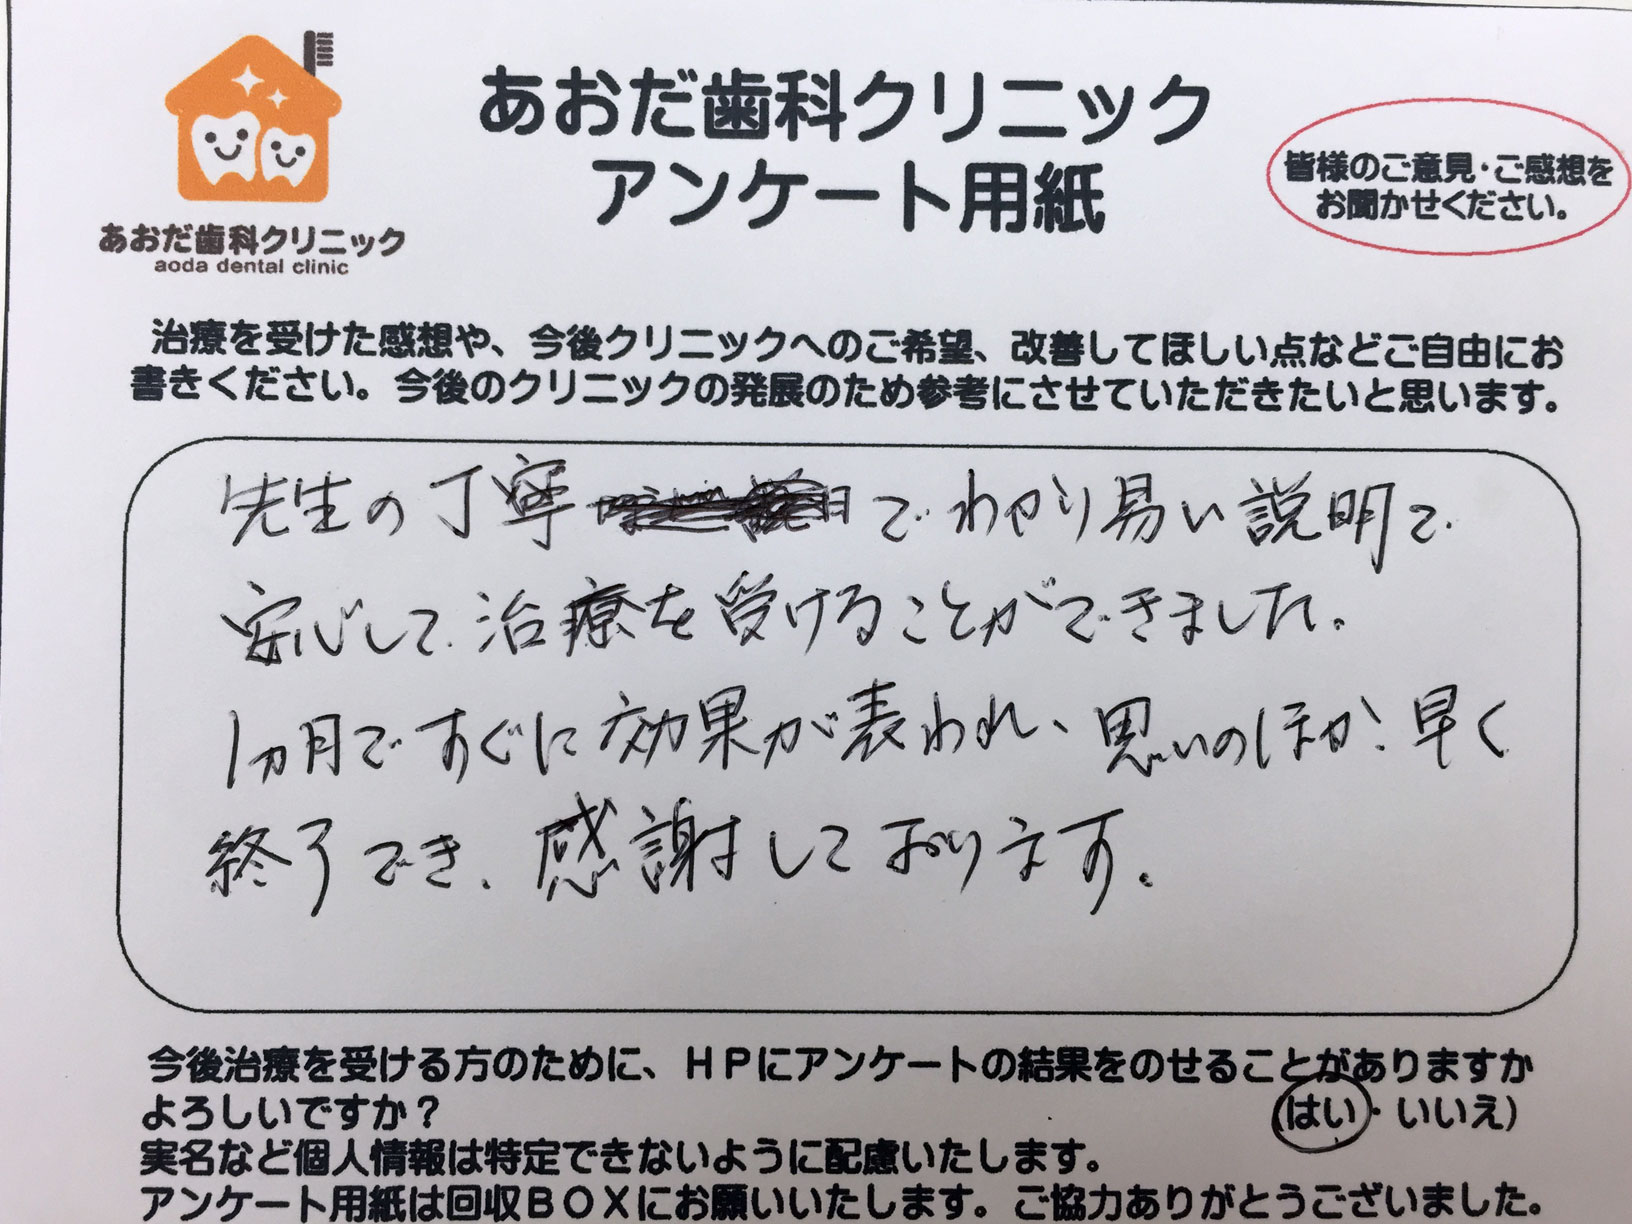 あおだ歯科クリニック
アンケート用紙
皆様のご意見・ご感想を
お聞かせください。
あおだ歯科クリニック
aoda dental clinic
治療を受けた感想や、今後クリニックへのご希望、改善してほしい点などご自由にお
書きください。今後のクリニックの発展のため参考にさせていただきたいと思います。
先生の丁寧でわかり易い説明で
安心して治療を受けることができました。
1ヵ月ですぐに効果が表われ、思いのほか早く
終了でき、感謝しております。
今後治療を受ける方のために、HPにアンケートの結果をのせることがありますか
よろしいですか？ (はい・いいえ)
実名など個人情報は特定できないように配慮いたします。
アンケート用紙は回収BOXにお願いいたします。ご協力ありがとうございました。